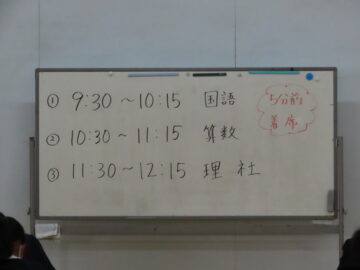 ① 9:30～10:15 国語
② 10:30～11:15 算数
③ 11:30～12:15 理 社
5分前
着席